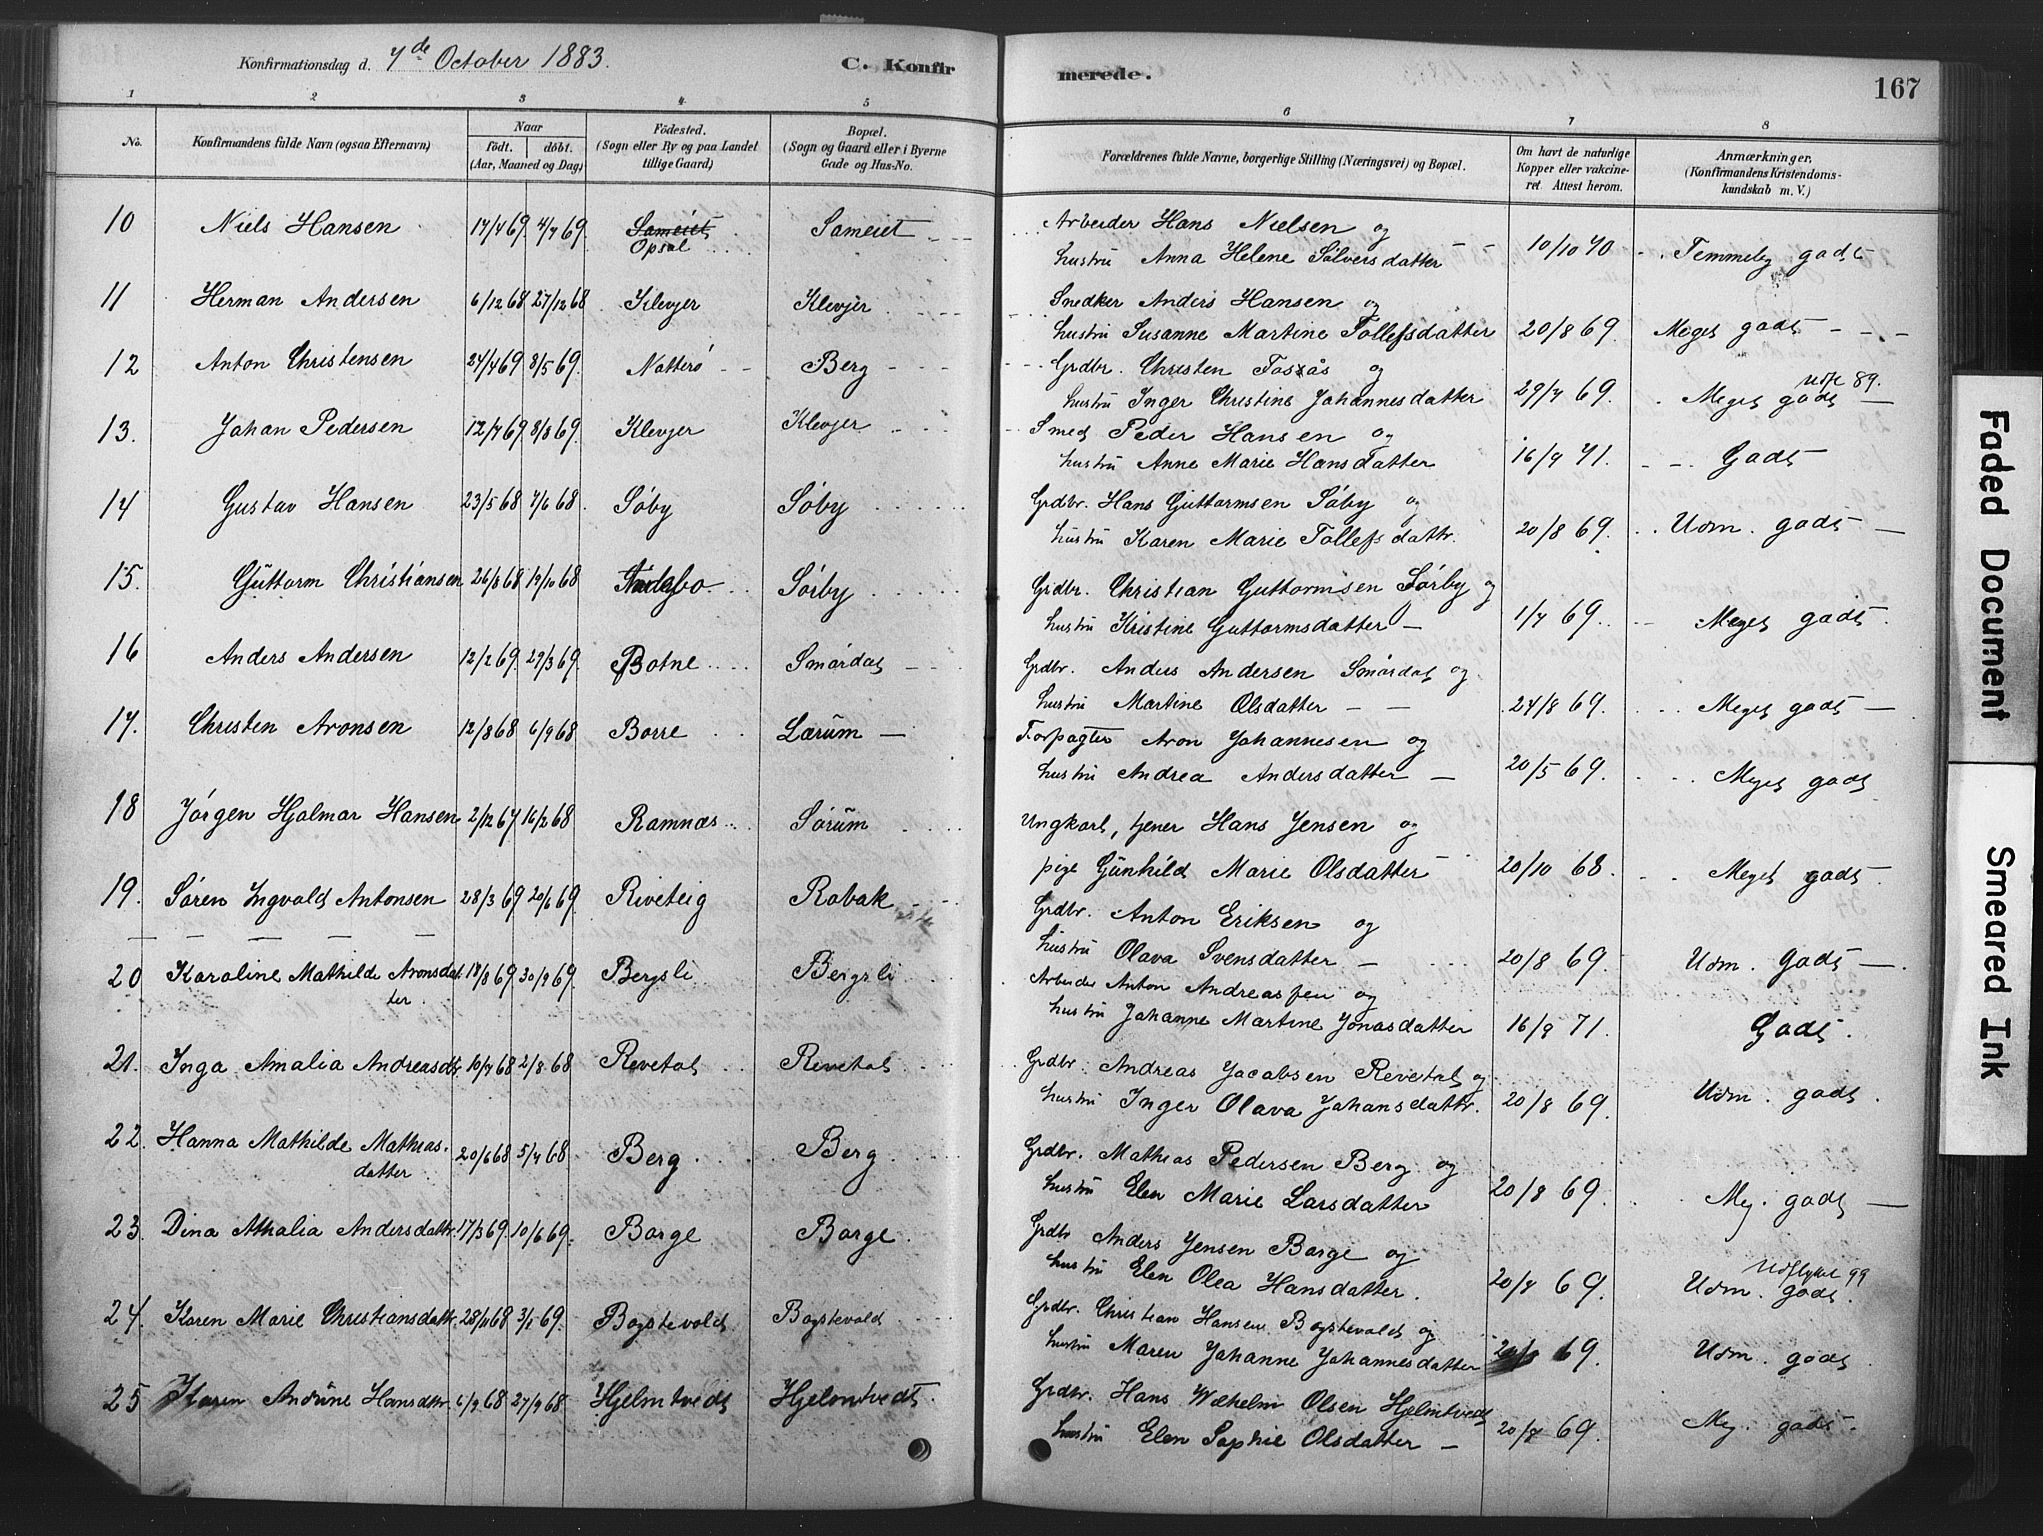 Konfirmationsdag d. 7de October 1883.
C. Konfir
merede.
167
1 2 3 4 5 6 7 8
No.
Konfirmandens fulde Navn (ogsaa Efternavn)
Naar
födt. döbt.
(Aar, Maaned og Dag)
Födested.
(Sogn eller By og paa Landet
tillige Gaard)
Bopæl.
(Sogn og Gaard eller i Byerne
Gade og Hus-No.
Forældrenes fulde Navne, borgerlige Stilling (Næringsvei) og Bopæl.
Om havt de naturlige
Kopper eller vakcine-
ret. Attest herom.
Anmærkninger,
(Konfirmandens Kristendoms-
kundskab m. V.)
10 Niels Hansen 17/4 69. 4/7 69. Sameiet Sameiet Arbeider Hans Nielsen og
Opsal hustru Anna Helene Sølversdatter 10/10 70 Temmelig godt
11 Herman Andersen 6/12 68 27/12 68 Klevjer Klevjer Snedker Anders Hansen og
hustru Susanne Martine Tollefsdatter 20/8 69. Meget godt
12 Anton Christensen 24/4 69 8/5 69. Nøtterø Berg Grdbr. Christen Fosås og
hustru Inger Christine Johannesdatter 29/7 69. Meget godt Udfl 89.
13. Johan Pedersen 12/7 69 8/8 69. Klevjer Klevjer Smed Peder Hansen og
hustru Anne Marie Hansdatter 16/9 71. Godt
14 Gustav Hansen 23/5 68 7/6 68. Søby Søby Grdbr. Hans Guttormsen Søby og
hustru Karen Marie Tollefsdattr. 20/8 69. Udm. godt
15. Guttorm Christiansen 26/8 68 19/10 68 Andebo Sørby Grdbr. Christian Guttormsen Sørby og
hustru Kristine Guttormsdatter 1/7 69. Meget godt.
16 Anders Andersen 12/2 69. 29/3 69. Botne Smørdal Grdbr. Anders Andersen Smørdal og
hustru Martine Olsdatter 24/8 69. Meget godt
17. Christen Aronsen 12/8 68 6/9 68 Borre Lærum Forpagter Aron Johannesen og
hustru Andrea Andersdatter 20/5 69. Meget godt
18 Jørgen Hjalmar Hansen 2/12 67 16/2 68 Ramnæs Sørum Ungkarl, tjener Hans Jensen og
pige Gunhild Marie Olsdatter 20/10 68. Meget godt.
19. Søren Ingvald Antonsen 28/3 69 20/6 69. Riveteig Robak Grdbr. Anton Eriksen og
hustru Olava Svensdatter 20/8 69. Udm. Godt
20 Karoline Mathilde Aronsdat- 18/8 69 30/9 69. Bergsli Bergsli Arbeider Anton Andreassen og
ter. hustru Johanne Martine Jonasdatter 16/9 71. Godt.
21. Inga Amalia Andreasdtr 10/7 68 2/8 68 Revetal Revetal Grdbr. Andreas Jacobsen Revetal og
hustru Inger Olava Johansdattr. 20/8 69. Udm. godt.
22. Hanna Mathilde Mathias- 20/6 68 5/7 68 Berg Berg Grdbr. Mathias Pedersen Berg og
datter hustru Elen Marie Larsdatter 20/8 69. Meg. godt
23. Dina Athalia Andersdattr. 17/3 69. 10/6 69. Borge Borge Grdbr Anders Jensen Borge og
hustru Elen Olea Hansdatter. 20/8 69. Udm. godt. Udflyttet 99
24. Karen Marie Christiansdattr. 28/11 68 3/1 69. Bogstevold Bogstevold Grdbr. Christian Hansen Bogstevold og
hustru Maren Johanne Johannesdatter 20/8 69. Udm. godt
25 Karen Andrine Hansdtr. 6/9 68 27/9 68 Hjelmtvedt Hjelmtvedt. Grdbr. Hans Wilhelm Olsen Hjelmtvedt
hustru Elen Sophie Olsdatter 20/8 69. Meg. godt.
Faded Document
Smeared Ink